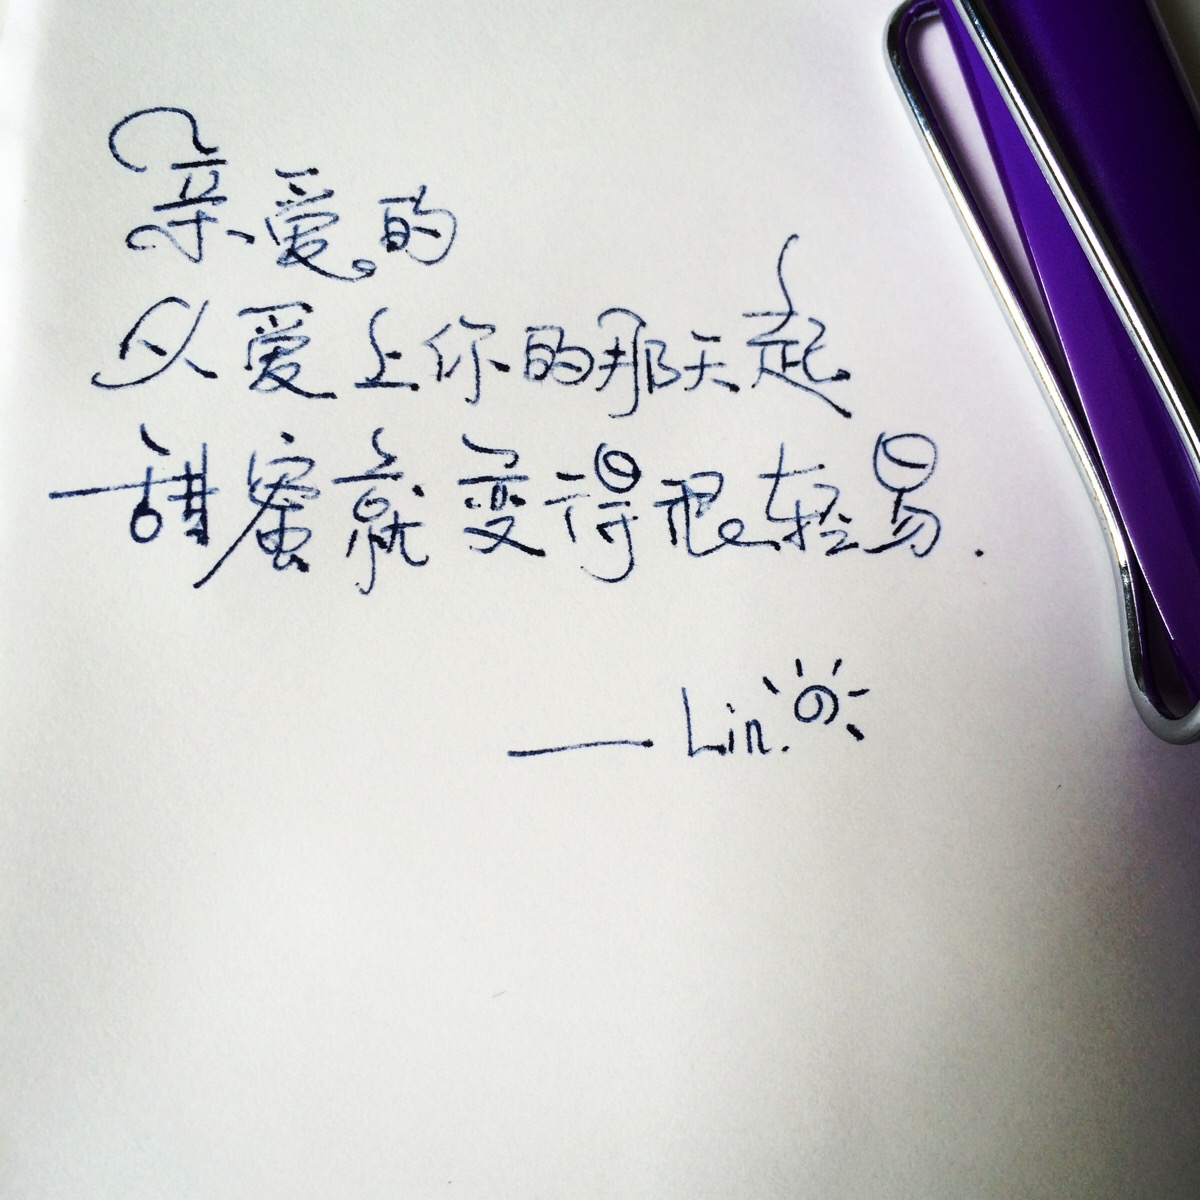 亲爱的
从爱上你的那天起
甜蜜就变得很轻易.
——Lin.